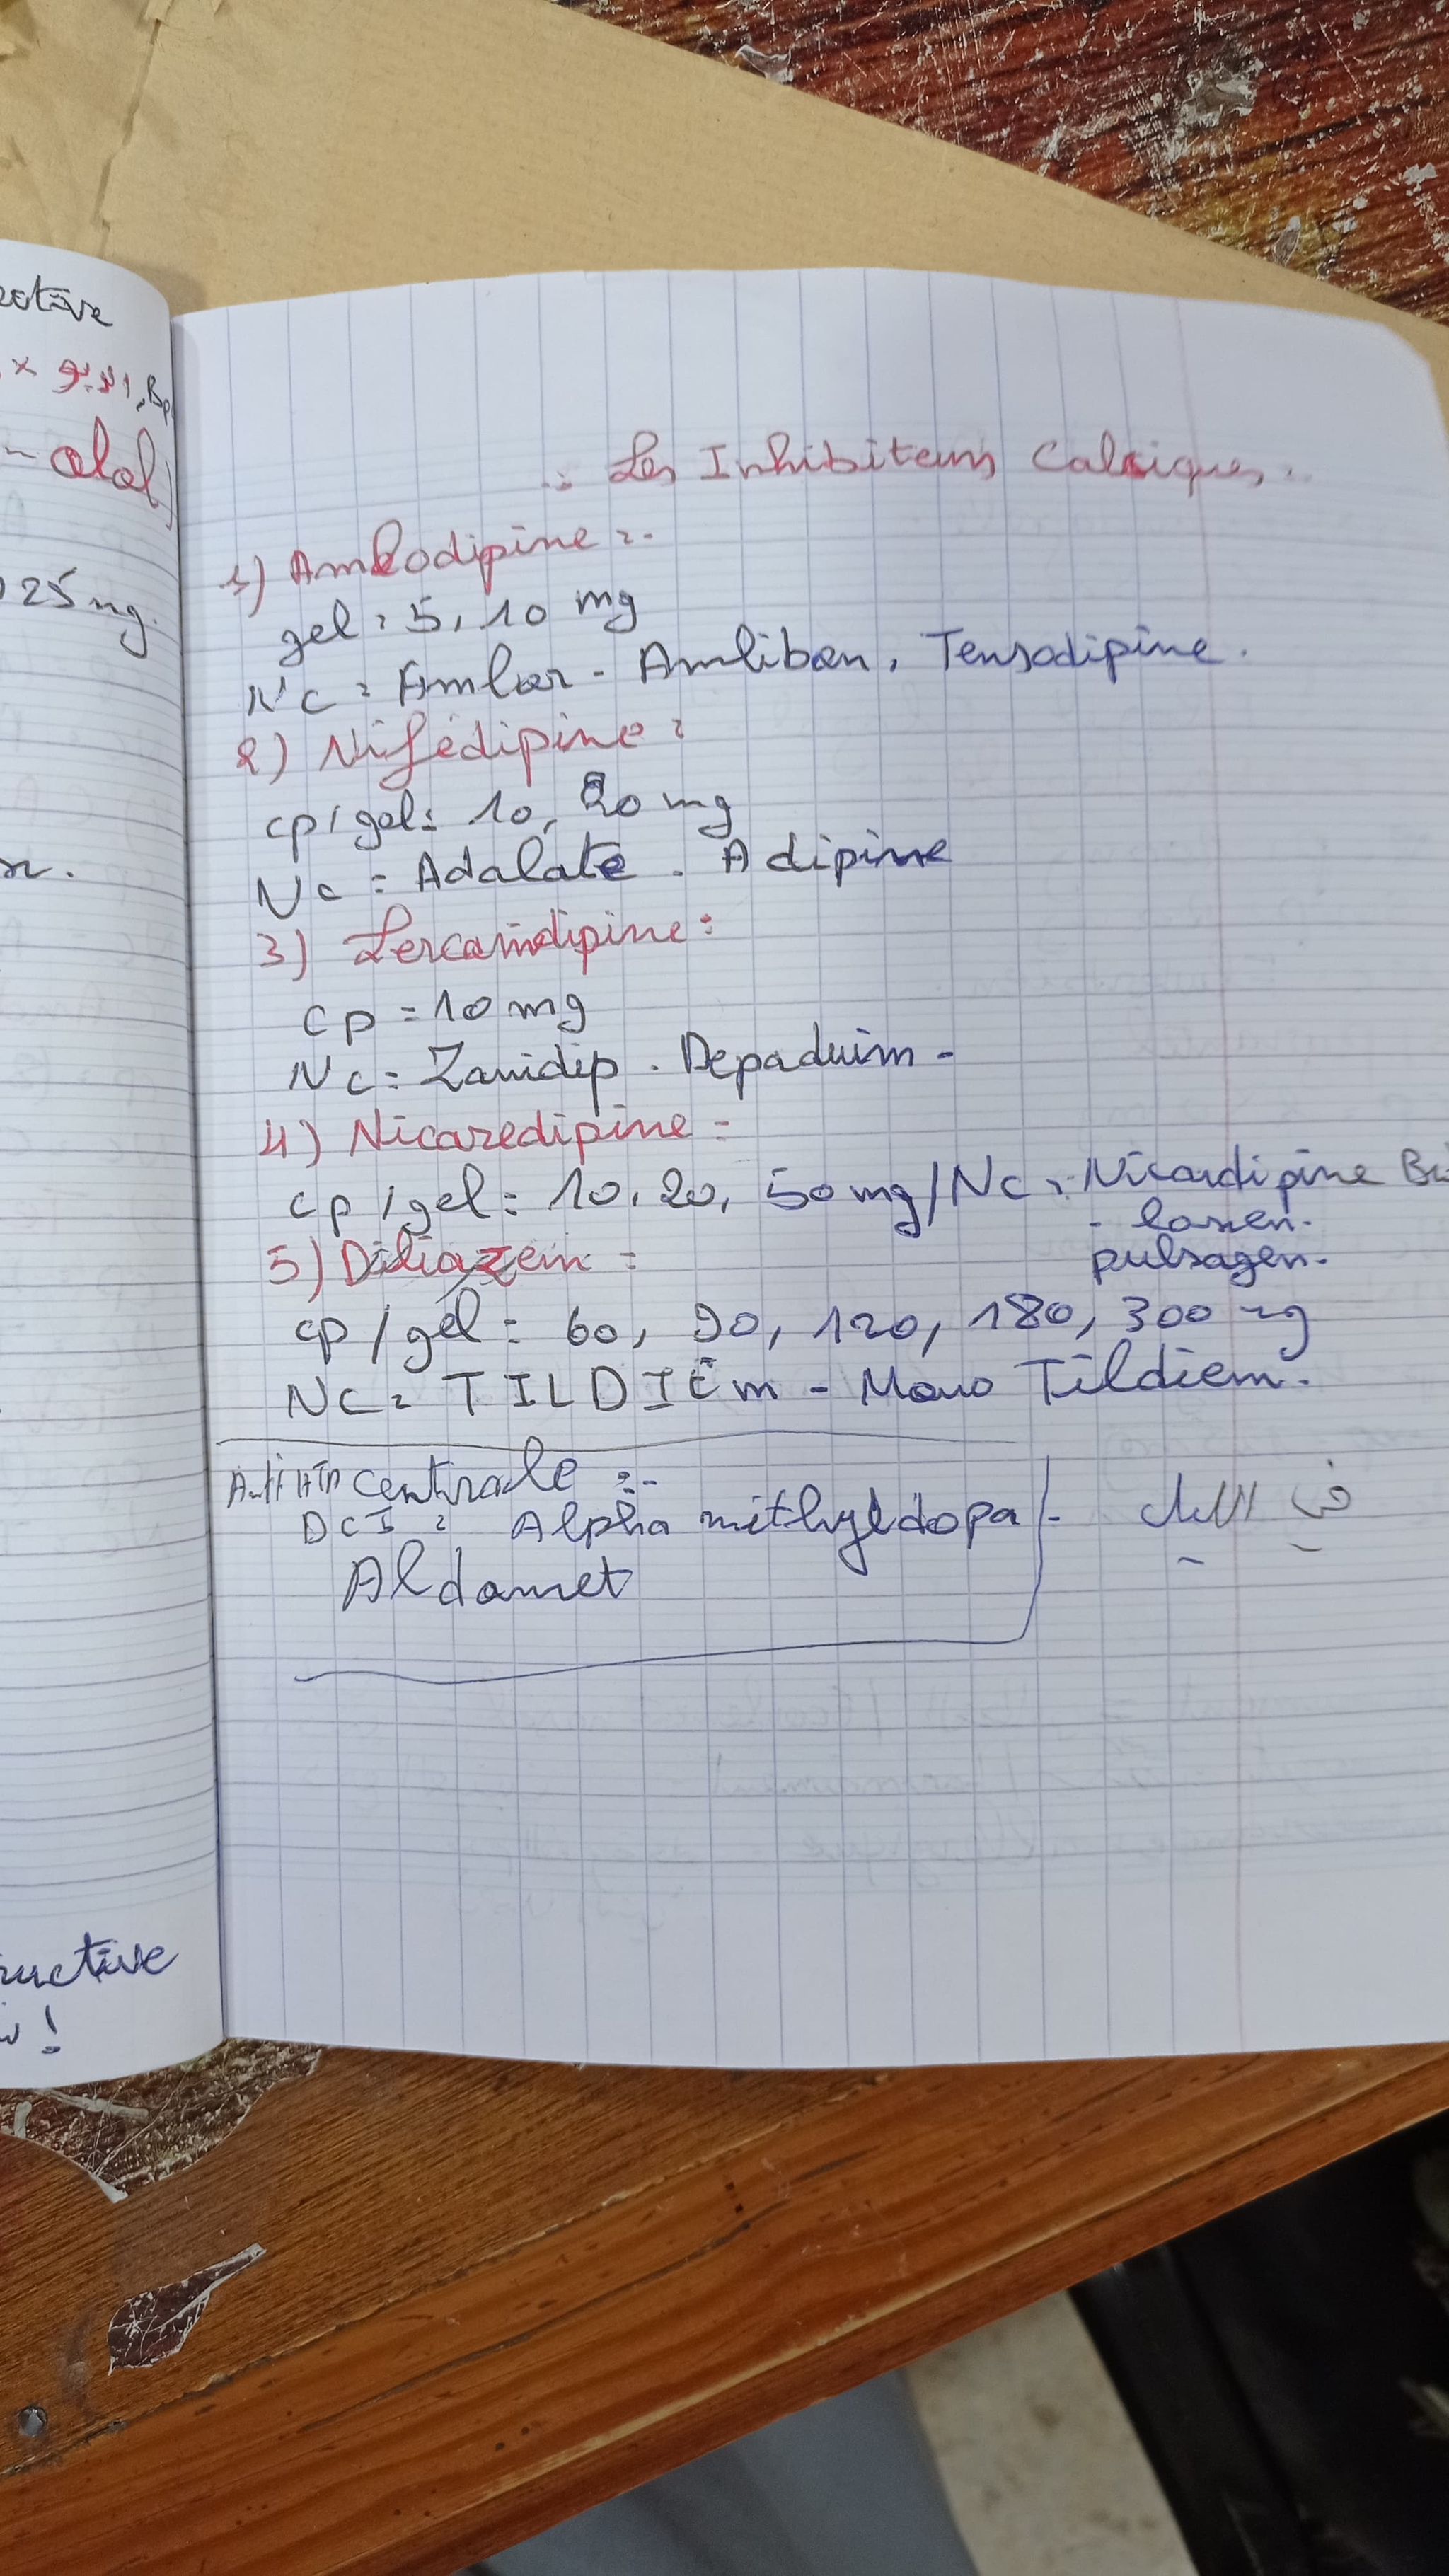 ective
25 mg.
olol)
:- Les Inhibiteurs Calsiques :-
1) Amlodipine :-
gel = 5, 10 mg
Nc = Amlor - Amlibon, Tensodipine.
2) Nifédipine :
cp/gel = 10, 20 mg
Nc = Adalate . Adipine
3) Lercanidipine :
cp = 10 mg
Nc = Zanidip . Depaduim -
4) Nicaredipine =
cp/gel = 10, 20, 50 mg / Nc : Nicardipine Bi
- loxen -
pulsagen -
5) Diliazem =
cp/gel = 60, 90, 120, 180, 300 mg
Nc = TILDIEm - Mono Tildiem -
Anti HTA centrale :-
DCI : Alpha méthyldopa - في الليل
Aldomet
ructive